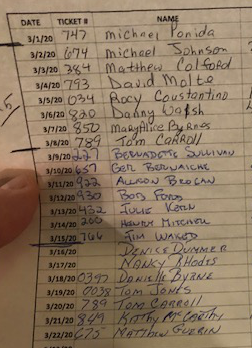 DATE TICKET # NAME
3/1/20 747 Michael Ponida
3/2/20 674 Michael Johnson
3/3/20 384 Matthew Colford
3/4/20 793 David Molte
3/5/20 034 Rocy Coustantino
3/6/20 820 Danny Walsh
3/7/20 850 MaryAlice Byrnes
3/8/20 789 Tom Carroll
3/9/20 227 Bernadette Sullivan
3/10/20 657 Ger Bernaiche
3/11/20 922 Brogan
3/12/20 930 Bob Ford
3/13/20 432 Julie Kern
3/14/20 200 Henry Mitchell
3/15/20 766 Jim Waked
3/16/20 Denice Dummer
3/17/20 Nancy Rhodes
3/18/20 0397 Danielle Byrne
3/19/20 0038 Tom Jones
3/20/20 789 Tom Carroll
3/21/20 849 Kathy McCarthy
3/22/20 675 Matthew Guerin